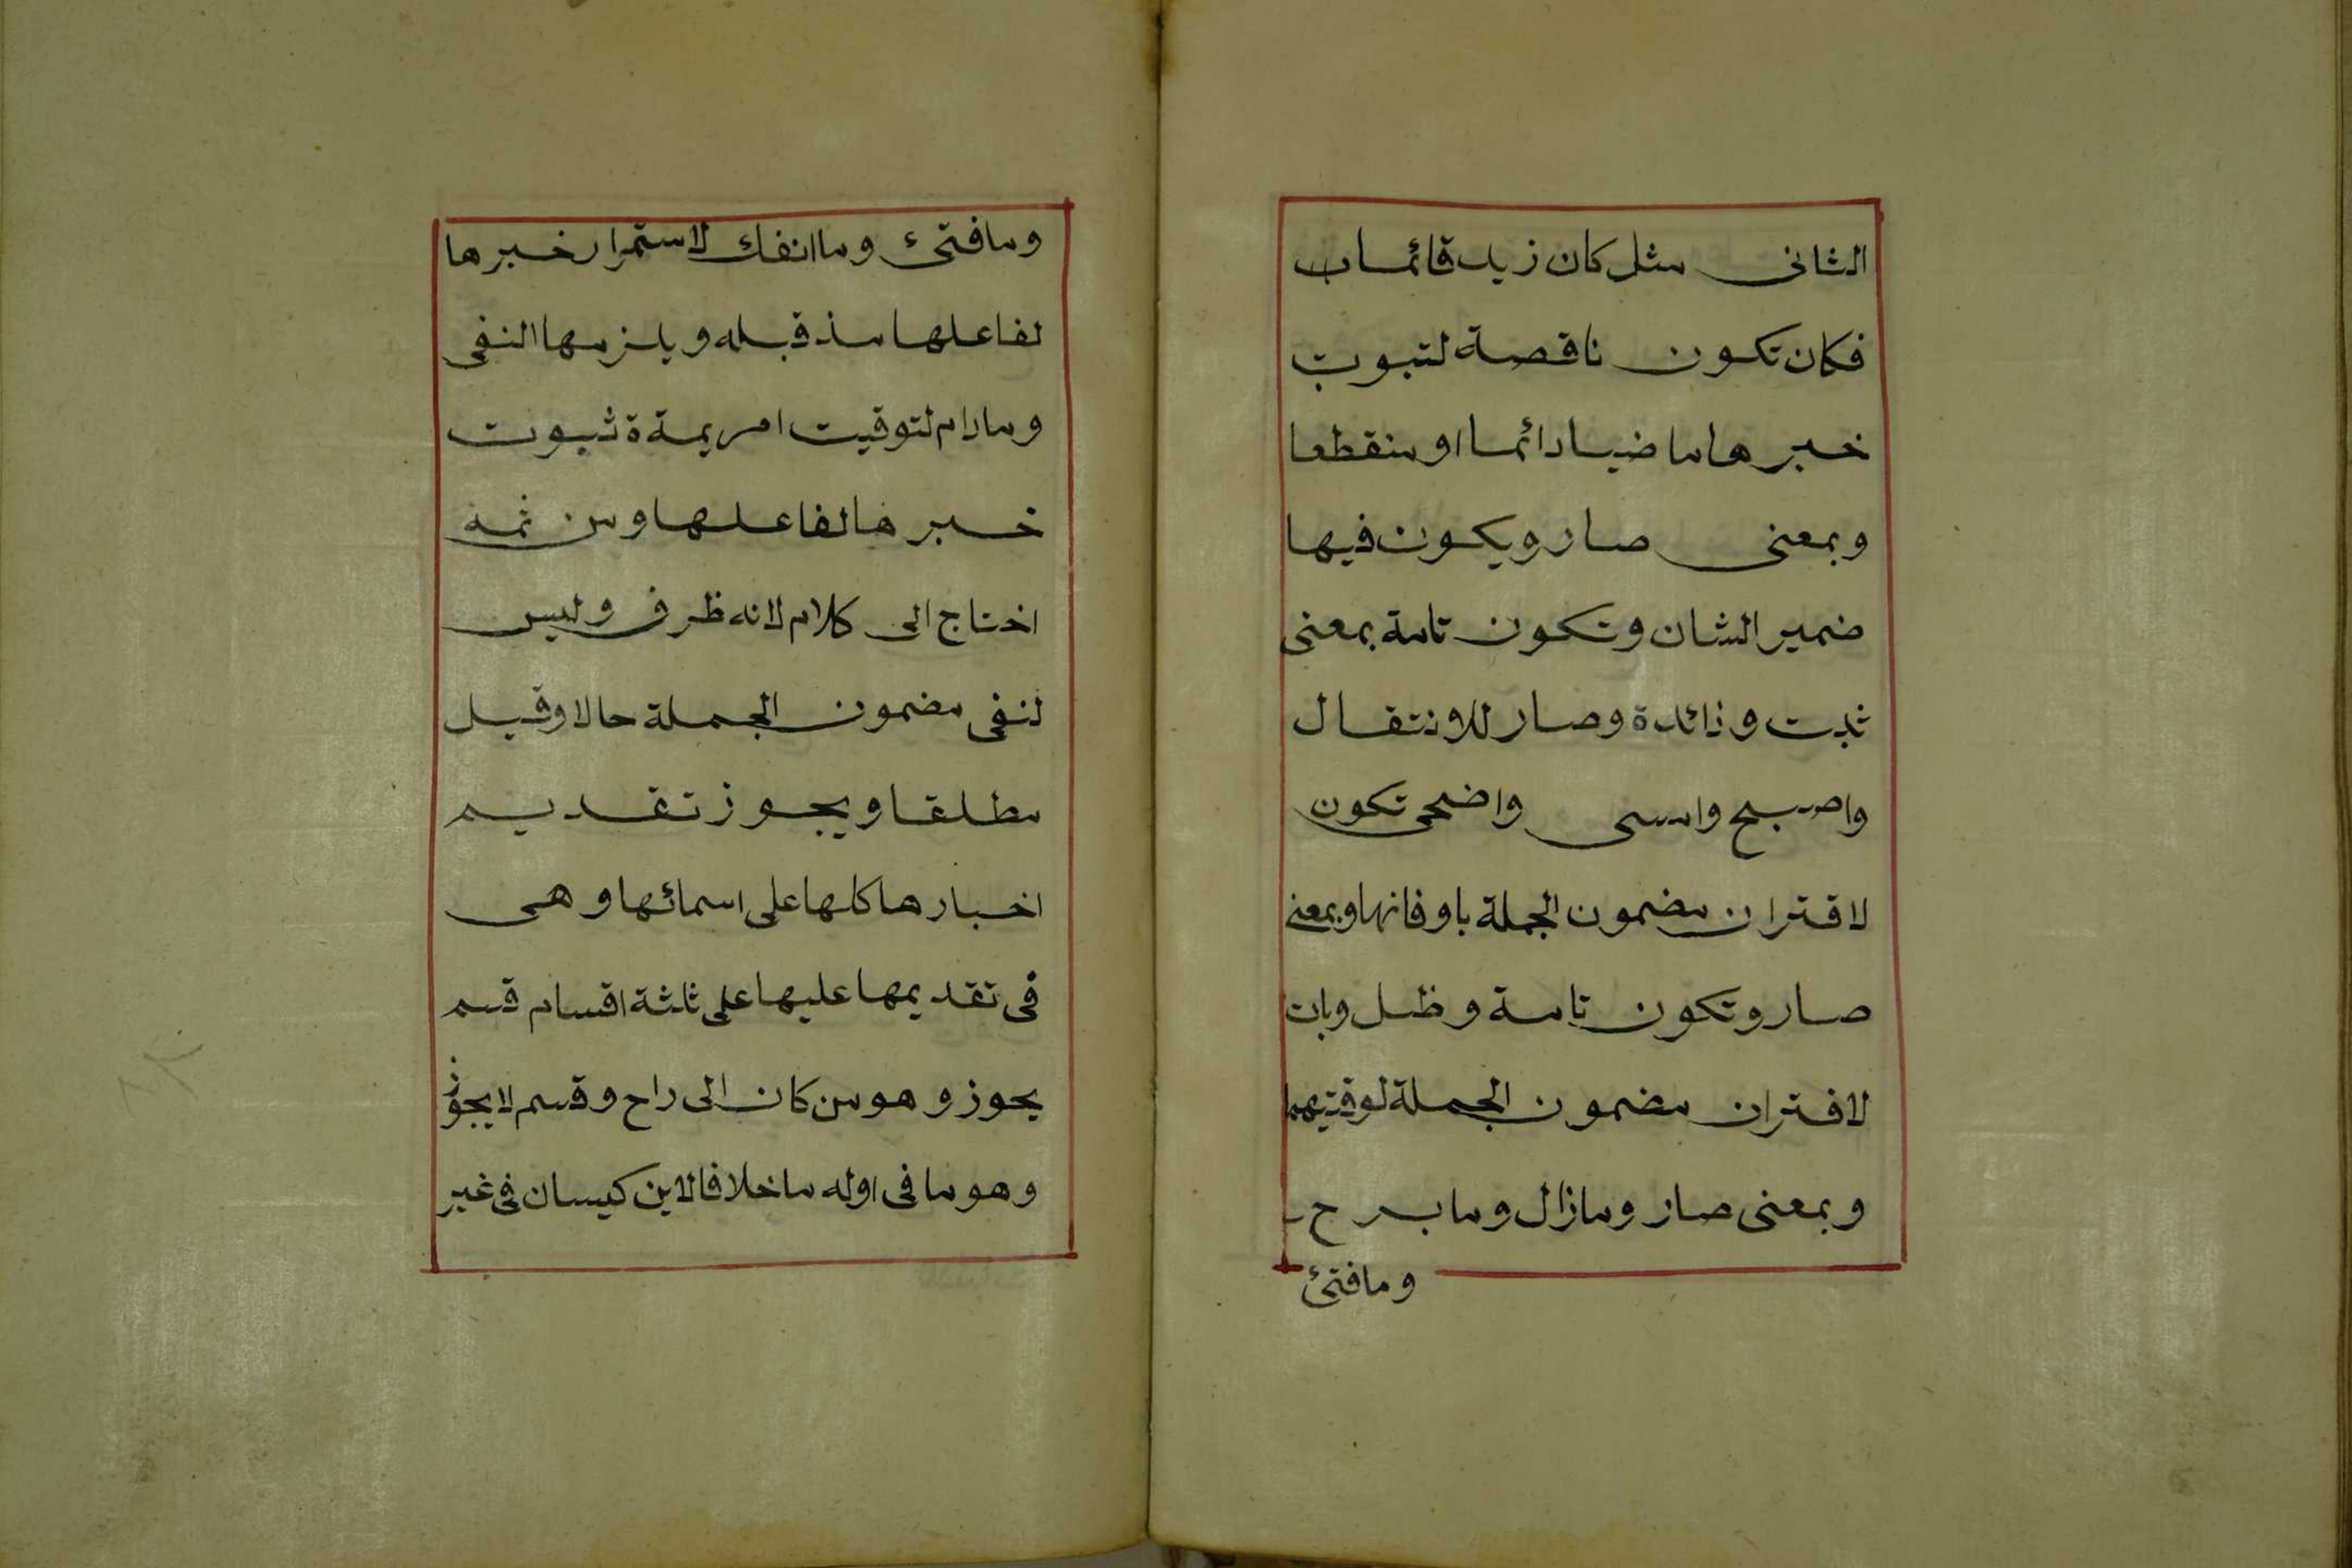 الثانى مثل كان زيد قائما
فكان تكون ناقصة لثبوت
خبرها ماضيا دائما او منقطعا
وبمعنى صار ويكون فيها
ضمير الشان وتكون تامة بمعنى
ثبت وزائدة وصار للانتقال
واصبح وامسى واضحى تكون
لاقتران مضمون الجملة باوقاتها وبمعنى
صار وتكون تامة وظل وبات
لاقتران مضمون الجملة لوقتيهما
وبمعنى صار ومازال ومابرح
ومافتئ
ومافتئ وماانفك لاستمرار خبرها
لفاعلها مذ قبله ويلزمها النفى
ومادام لتوقيت امر يمدة ثبوت
خبرها لفاعلها ومن ثمه
احتاج الى كلام لانه ظرف وليس
لنفى مضمون الجملة حالا وقيل
مطلقا ويجوز تقديم
اخبارها كلها على اسمائها وهى
فى تقديمها عليها على ثلثة اقسام قسم
يجوز وهو من كان الى راح وقسم لا يجوز
وهو ما فى اوله ما خلافا لابن كيسان فى غير